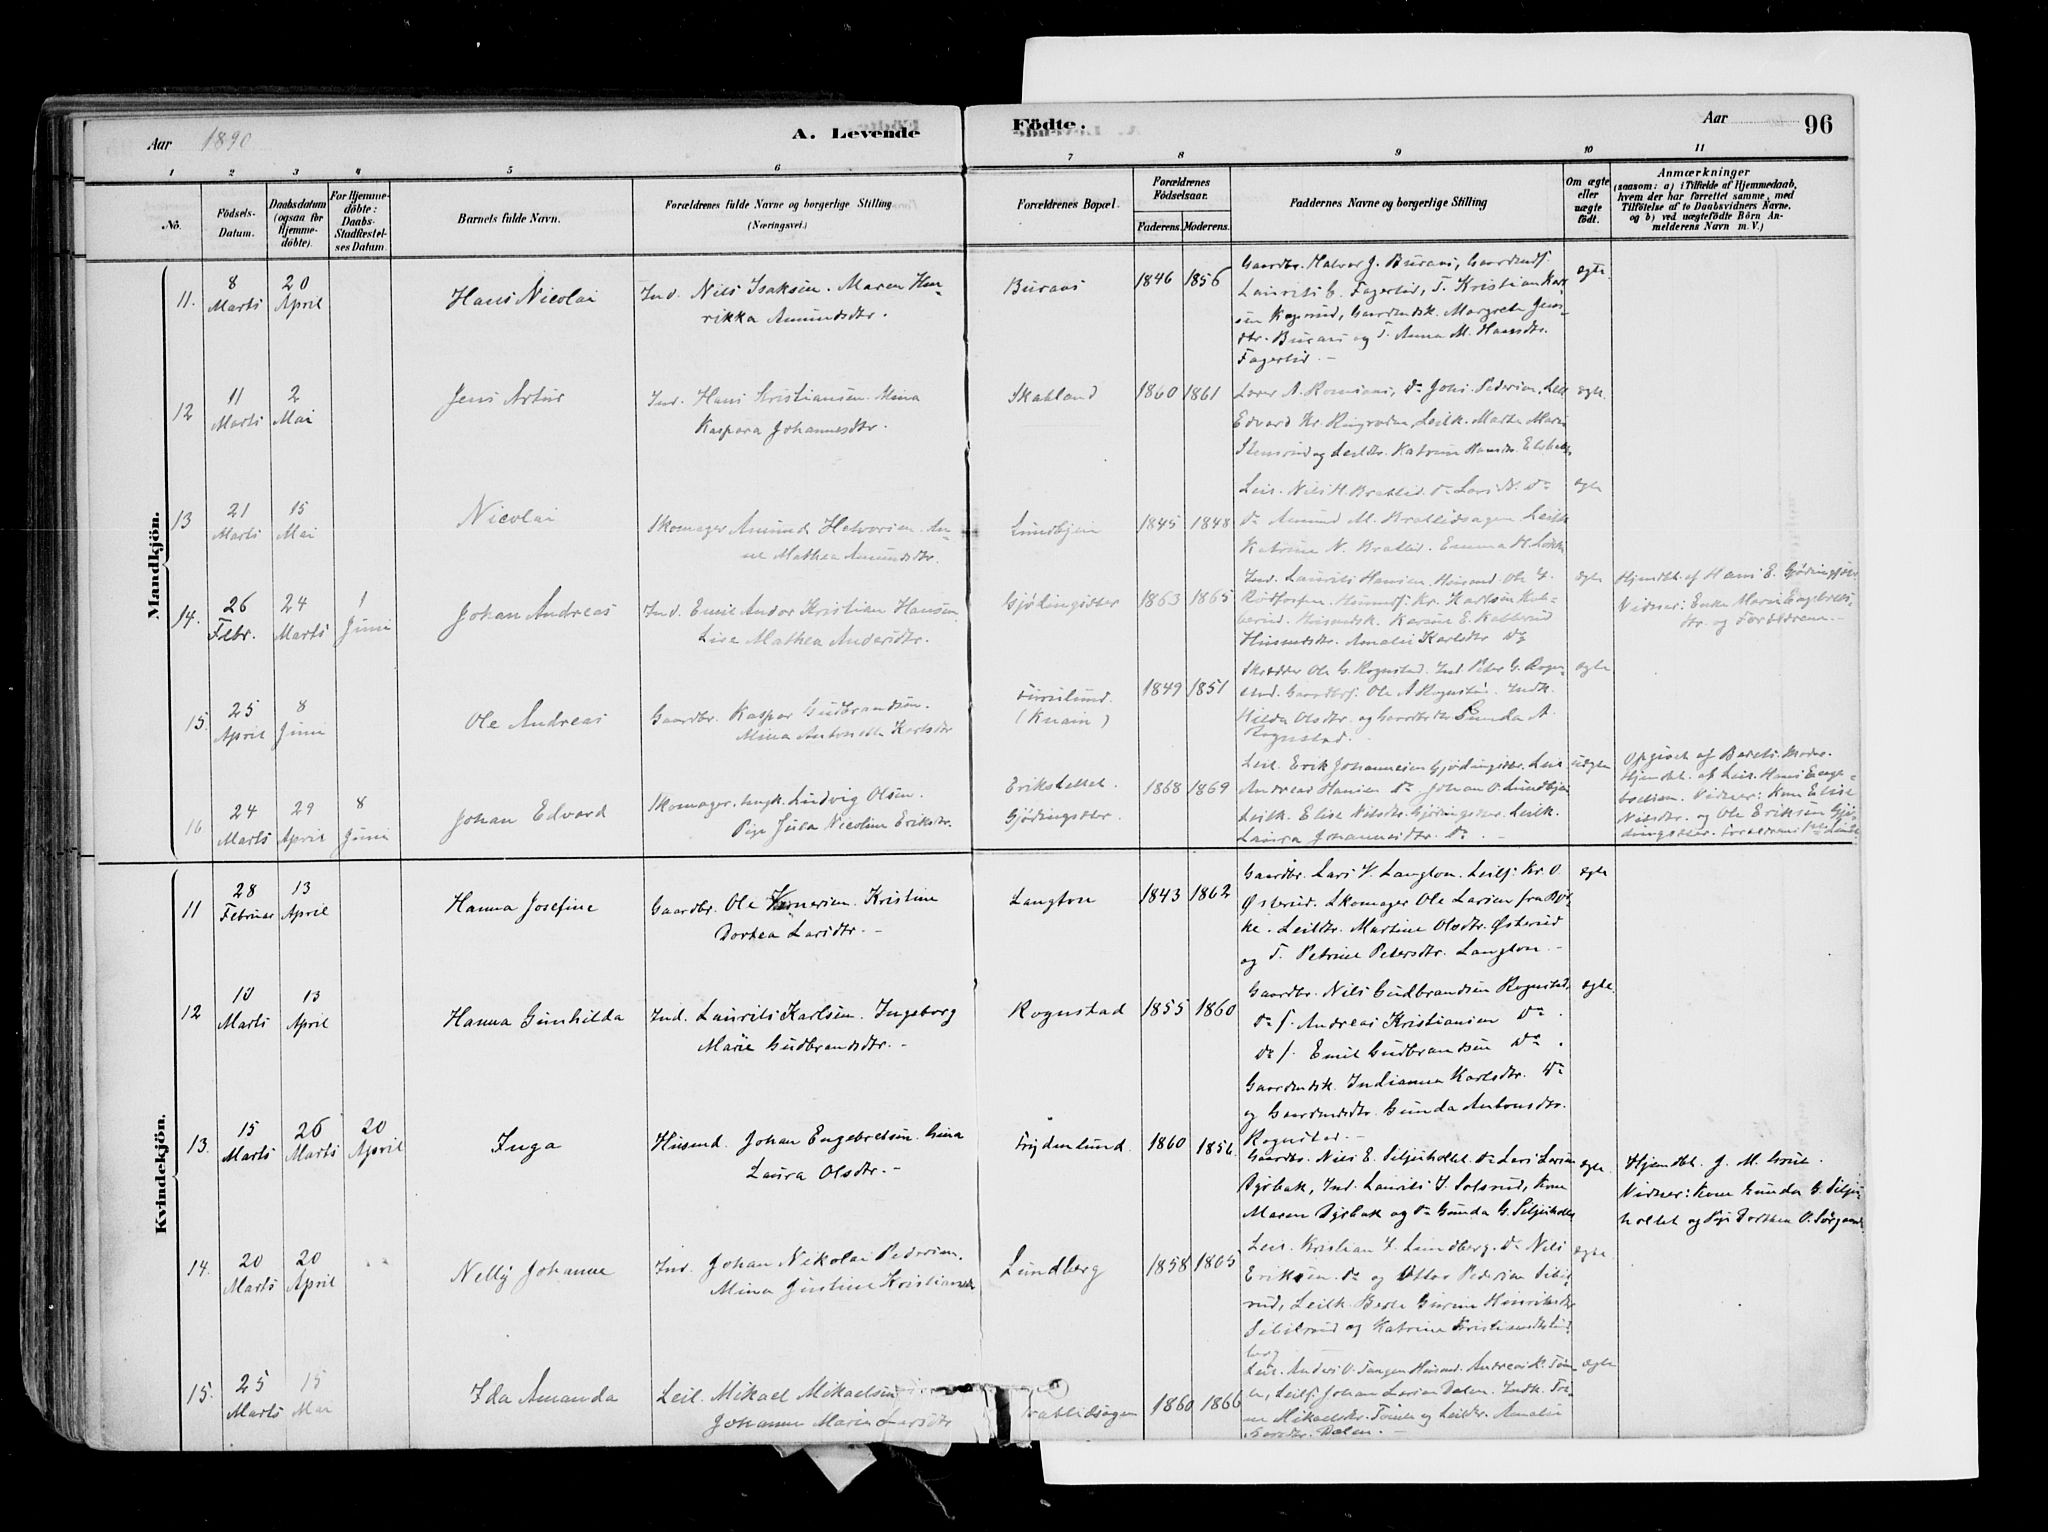 Aar 1890
A. Levende
Födte.
Aar
96
1 2 3 4 5 6 7 8 9 10 11
No.
Födsels-Datum.
Daabsdatum (ogsaa for Hjemme-döbte).
For Hjemme-döbte: Daabs-Stadfæstel-ses Datum.
Barnets fulde Navn.
Forældrenes fulde Navne og borgerlige Stilling (Næringsvei.)
Forældrenes Bopæl.
Forældrenes Födselsaar.
Faderens. Moderens.
Faddernes Navne og borgerlige Stilling
Om ægte eller uægte födt.
Anmærkninger
(saasom: a) i Tilfælde af Hjemmedaab,
hvem der har forrettet samme, med
Tilföielse af to Daabsvidners Navne,
og b) ved uægtefödte Börn An-
melderens Navn m. V.)
Mandkjön.
11. 8 Marts 20 April Hans Nicolai
Ind. Nils Isaksen. Maren Hen-
rikka Amundsdtr.
Buraas 1846 1856
Gaardbr. Halvor J. Buraas, Gaardmdf.
Laurits C. Fagerlid, T. Kristian Karl-
sen Kogsrud, Gaardmdsk. Margrete Jens-
dtr. Buraas og T. Anna M. Hansdtr.
Fagerlid.
ægte.
12 11 Marts 2 Mai Jens Artur
Ind. Hans Kristiansen. Mina
Kaspara Johannesdtr.
Skabland 1860 1861
Edvard Kr. Ringroden, Leilk. Marte Marie
Stensrud og Leildtr. Katrine Hansdtr.
ægte.
13 21 Marts 15 Mai Nicolai
Skomager Amund Halvorsen. An-
ne Mathea Amundsdtr.
Lundhjem 1845 1848
Leil. Nils H. Bratlid. Do Lars N. Do
Do Amund M. Bratlidsagen, Leilk
Katrine N. Bratlid. Emma H.
ægte
14. 26 Febr. 24 Marts 1 Juni Johan Andreas
Ind. Emil Andor Kristian Hansen
Lise Mathea Andersdtr.
Gjødingsæter 1863 1865
Ind. Laurits Hansen. Husmd. Ole
Husmdf. Kr. Karlsen Kab-
berud. Husmdsk. Karine E. Kabberud
Husmdsdtr. Amalie Karlsdtr Do
ægte
Hjemdbt. af Hans E. Gjødingsæter
Vidner: Enke Marie Engebrets-
dtr. og Forældrene.
15. 25 April 8 Juni Ole Andreas
Gaardbr. Kaspar Gudbrandsen.
Mina Antonette Karlsdtr
(Knain) 1849 1851
Skrædder Ole G. Rognstad. Ind Peter G. Rogn-
stad. Gaardbrf. Ole A Rognstad. Indk.
Hilda Olsdtr. og Gaardbrdtr Gunda A.
Rognstad.
ægte
16 24 Marts 29 April 8 Juni Johan Edvard
Skomager. Ungk. Ludvig Olsen.
Pige Jula Nicoline Eriksdtr.
Gjødingsæter. 1868 1869
Leil. Erik Johannesen Gjødingsæter. Leil
Andreas Hansen Do Johan O. Lundhjem
Leilk. Elise Nilsdtr. Gjødingsæter. Leilk.
Laura Johannesdtr. Do
uægte
Opgivet af Barnets Moder.
Hjemdbt. af Leil. Hans Enge-
bretsen. Vidner: Kone Elise
Nilsdtr. og Ole Eriksen Gjø-
dingsæter.
Kvindekjön.
11 28 Februar 13 April Hanna Josefine
Gaardbr. Ole Vernersen. Kristine
Dorthea Larsdtr.
Langton 1843 1862
Gaardbr. Lars V. Langton. Leilf. Kr. O.
Østerud. Skomager Ole Larsen fra Byk-
ke. Leildtr. Martine Olsdtr. Østerud
og T. Petrine Petersdtr. Langton.
ægte
12 10 Marts 13 April Hanna Gunhilda
Ind. Laurits Karlsen. Ingeborg
Marie Gudbrandsdtr.
Rognstad 1855 1860
Gaardbr. Nils Gudbrandsen Rognstad,
Do f. Andreas Kristiansen Do.
Do f. Emil Gudbrandsen Do.
Gaardmdsk. Indianna Karlsdtr. Do
og Gaardmdsdtr. Gunda Antonsdtr.
Rognstad.
ægte.
13. 15 Marts 26 Marts 20 April Inga
Husmd. Johan Engebretsen. Gina
Laura Olsdtr.
Frydenlund. 1860 1856.
Gaardbr. Nils E. Siljeholtet Do Lars Larsen
Dyrbak, Ind. Laurits J. Solsrud, Kone
Maren Dyrbak og Do Gunda G. Siljeholtet
ægte.
Hjemdbt. J. M. Grue.
Vidner: Kone Gunda G. Silje-
holtet og Pige Dorthea O.
14. 20 Marts 20 April Nelly Johanne
Ind. Johan Nikolai Pedersen.
Mina Justine Kristiansdtr
Lundberg 1858 1865
Leil. Kristian F. Lundberg. Do Nils
Eriksen. Do og Ottar Pedersen Sibil-
rud, Leilk. Berte Gurine Henriksdtr
Sibilrud og Katrine Kristiansdtr Lund-
berg
ægte.
15. 25 Marts 15 Mai Ida Amanda
Leil. Mikael Mikaelsen
Johanne Marie Larsdtr
Bratlidsagen 1860 1866
Leil. Anders O. Tangen Husmd. Andreas
Leilf. Johan Larsen Dalen. Indk.
Mikaelsdtr. og Leildtr. Amalie
Dalen.
ægte